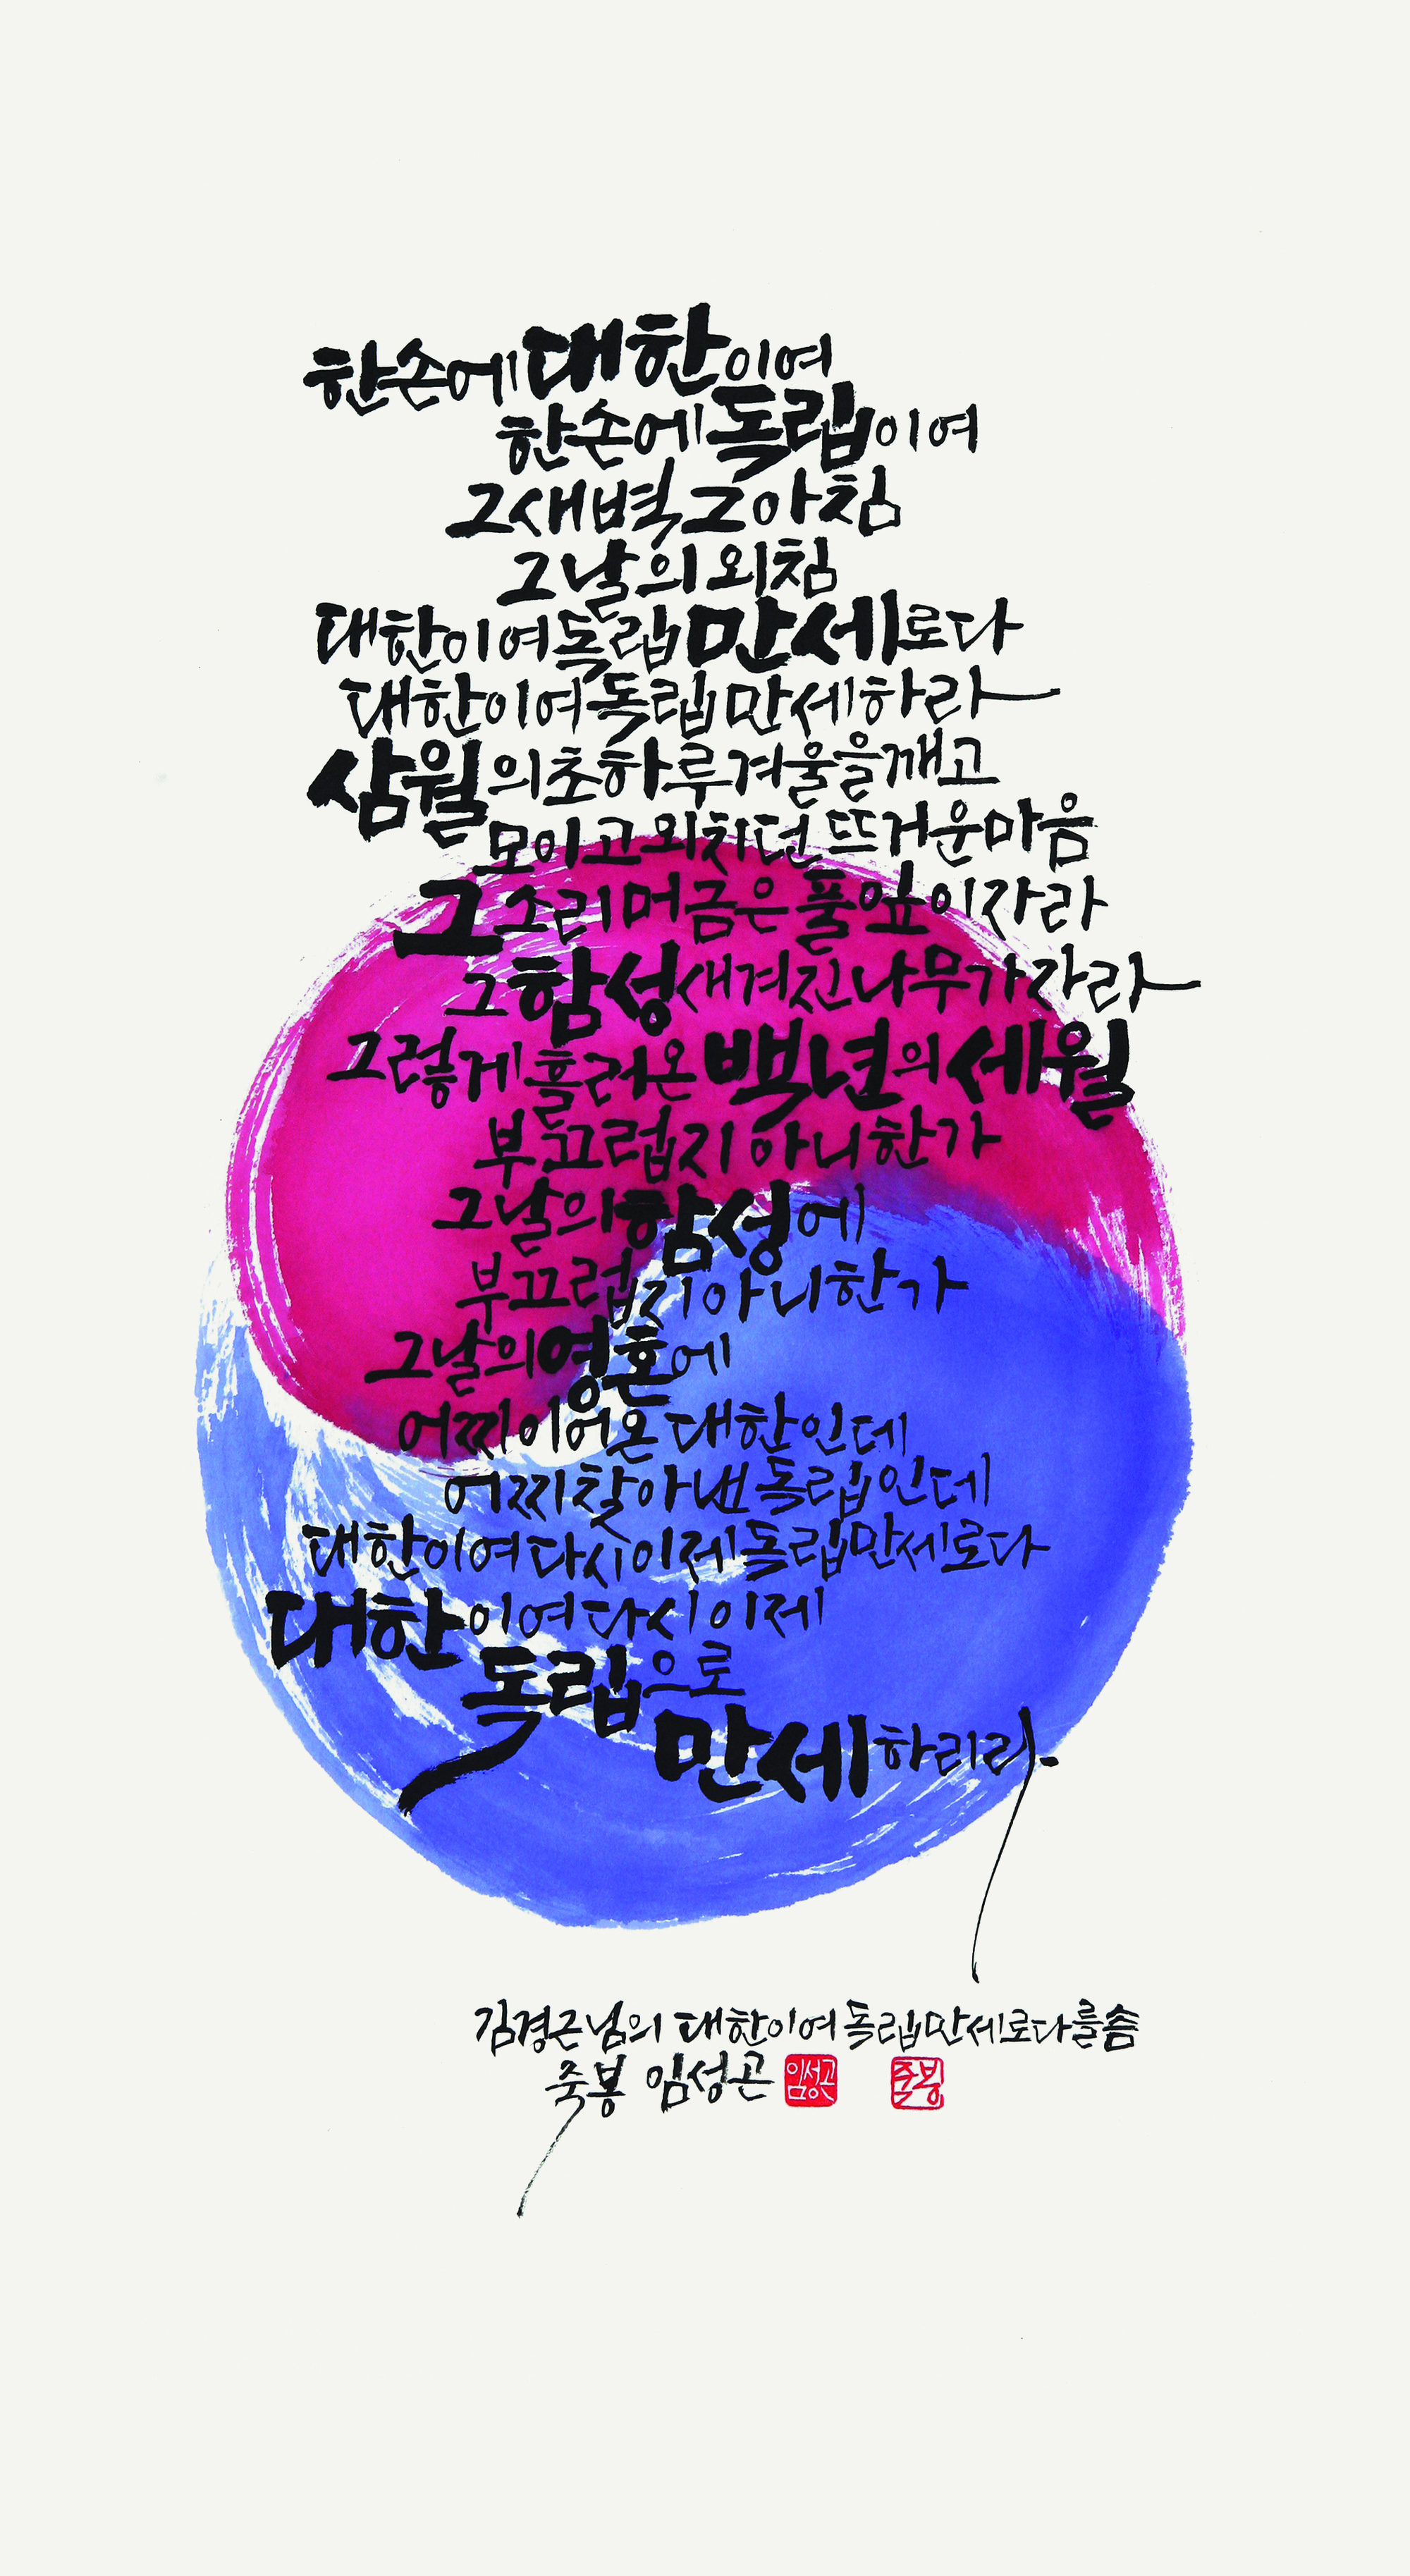 한손에 대한이여
한손에 독립이여
그새벽 그아침
그날의 외침
대한이여 독립 만세로다
대한이여 독립 만세하라
삼월의 초하루 겨울을 깨고
모이고 외치던 뜨거운 마음
그 소리 머금은 풀잎이 자라
그 함성 새겨진 나무가 자라
그렇게 흘러온 백년의 세월
부끄럽지 아니한가
그날의 함성에
부끄럽지 아니한가
그날의 영혼에
어찌 이어온 대한인데
어찌 찾아낸 독립인데
대한이여 다시 이제 독립만세로다
대한이여 다시 이제
독립으로
만세하리라
김경근님의 대한이여 독립만세로다를 씀
죽봉 임성곤 임성곤 죽봉